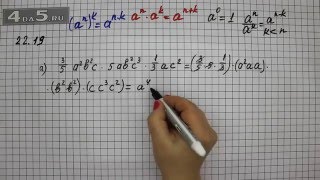 4ДА5.RU
(aⁿ)ᵏ = aⁿ·ᵏ aⁿ · aᵏ = aⁿ⁺ᵏ a⁰ = 1 aⁿ/aᵏ = aⁿ⁻ᵏ k < n
22.19
а) 3/5 a²b²c · 5ab²c³ · 1/3 ac² = (3/5 · 5 · 1/3) · (a²aa) ·
· (b²b²) · (cc³c²) = a⁴